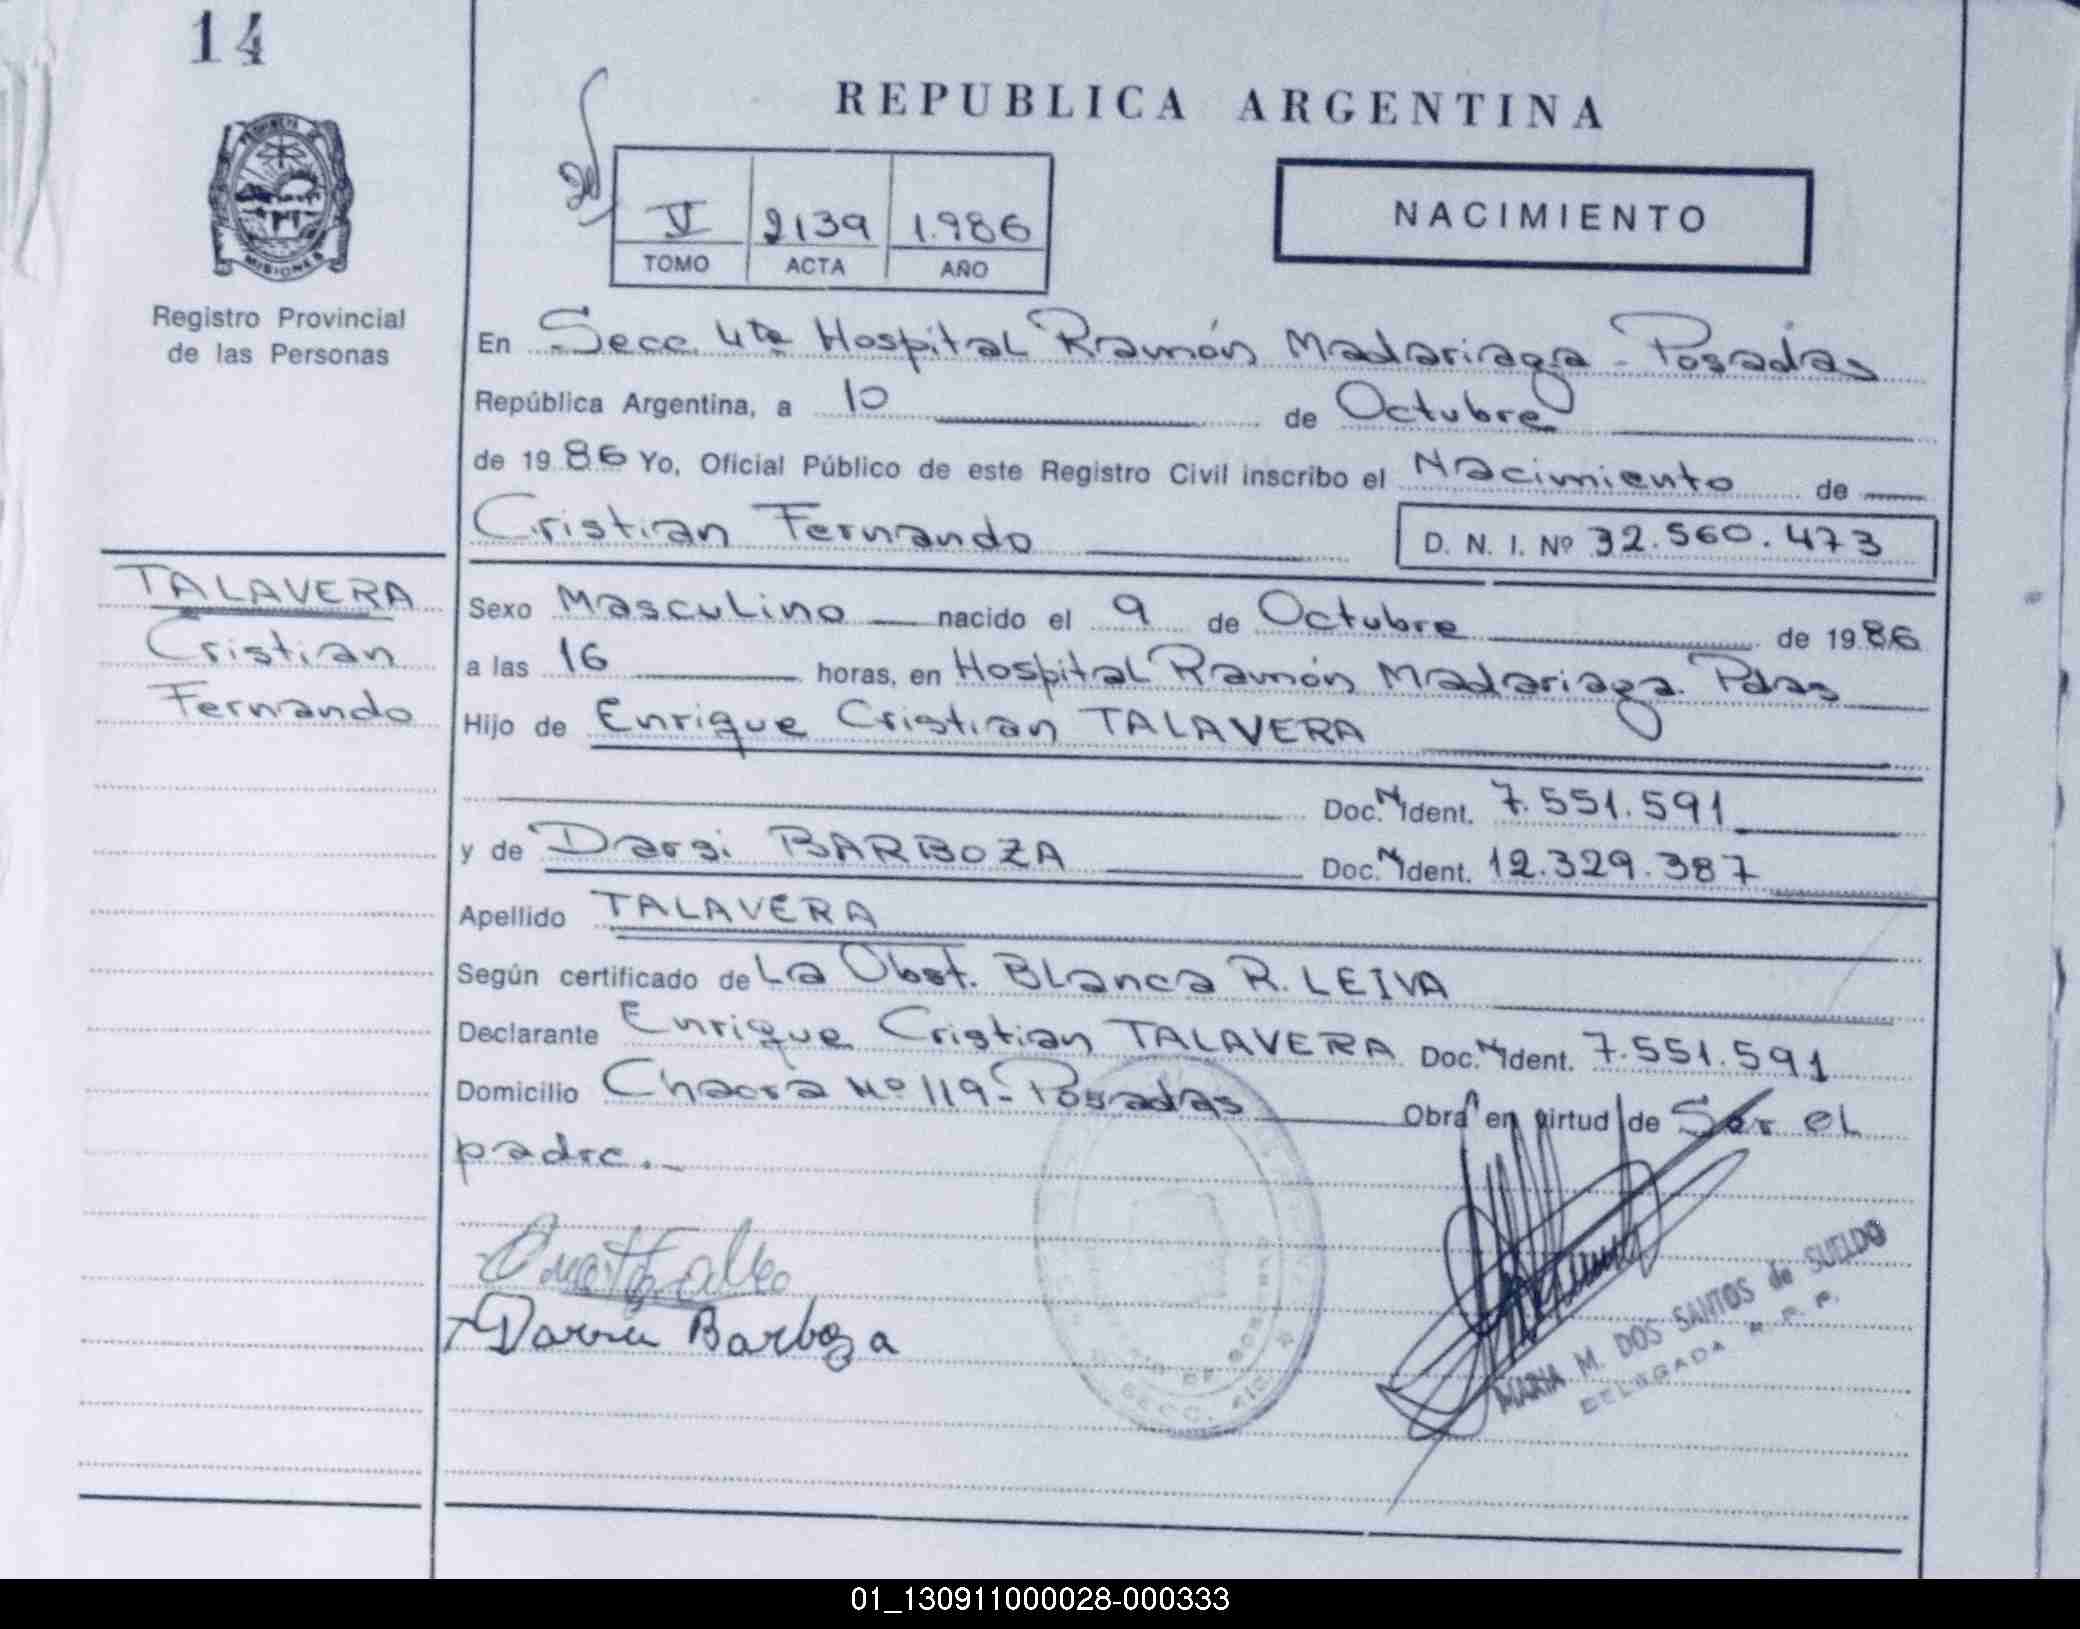 14
REPUBLICA ARGENTINA
PROVINCIA DE
MISIONES
V 2139 1.986
TOMO ACTA AÑO
NACIMIENTO
Registro Provincial
de las Personas
En Secc. 4ta Hospital Ramón Madariaga - Posadas
República Argentina, a 10 de Octubre
de 1986 Yo, Oficial Público de este Registro Civil inscribo el Nacimiento de
Cristian Fernando D. N. I. Nº 32.560.473
TALAVERA
Cristian
Fernando
Sexo Masculino nacido el 9 de Octubre de 1986
a las 16 horas, en Hospital Ramón Madariaga. Pdas
Hijo de Enrique Cristian TALAVERA
Doc. N Ident. 7.551.591
y de Darsi BARBOZA Doc. N Ident. 12.329.387
Apellido TALAVERA
Según certificado de La Obst. Blanca R. LEIVA
Declarante Enrique Cristian TALAVERA Doc. N Ident. 7.551.591
Domicilio Chacra Nº 119 - Posadas Obra en virtud de Ser el
padre.
Barboza
SECC. 4ta
MARIA M. DOS SANTOS de SUELDO
DELEGADA R. P. P.
01_130911000028-000333